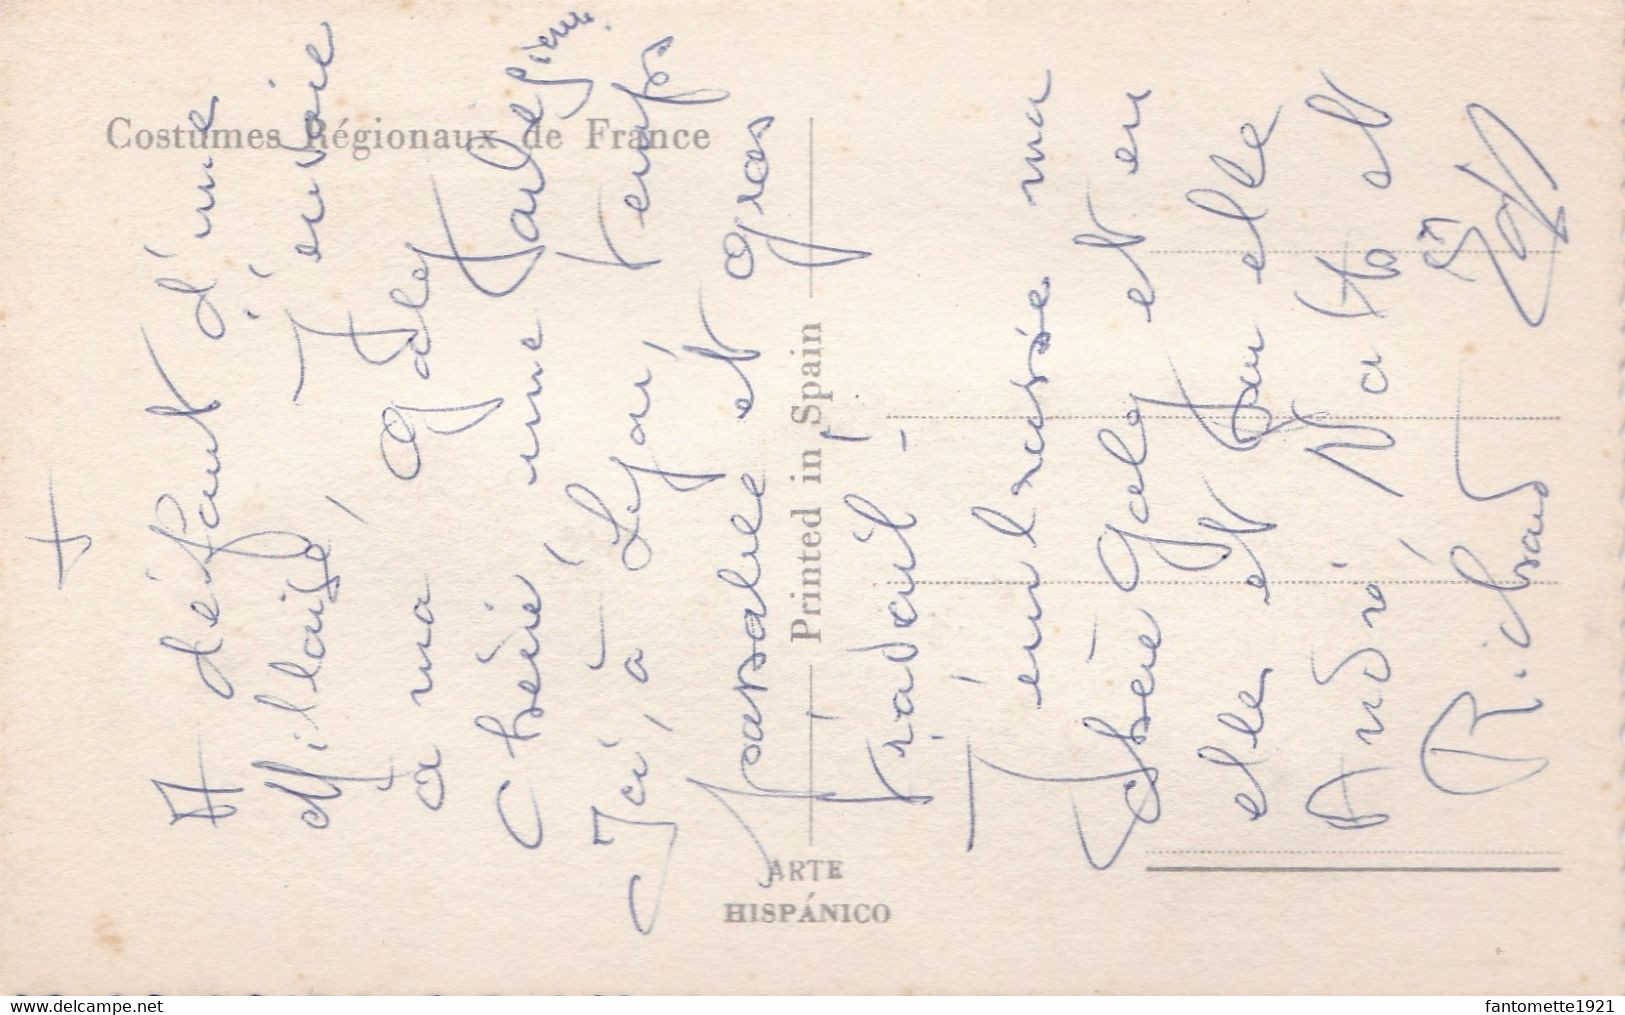 Costumes Régionaux de France
Printed in Spain
ARTE
HISPÁNICO
A défaut d'une
Millaise, j'envoie
à ma Gaby
chérie, une
Ici, à Lyon, temps
passable et gros
travail -
J'embrasse ma
chère Gaby et en
elle et par elle
André, Na et
Richard
www.delcampe.net
fantomette1921